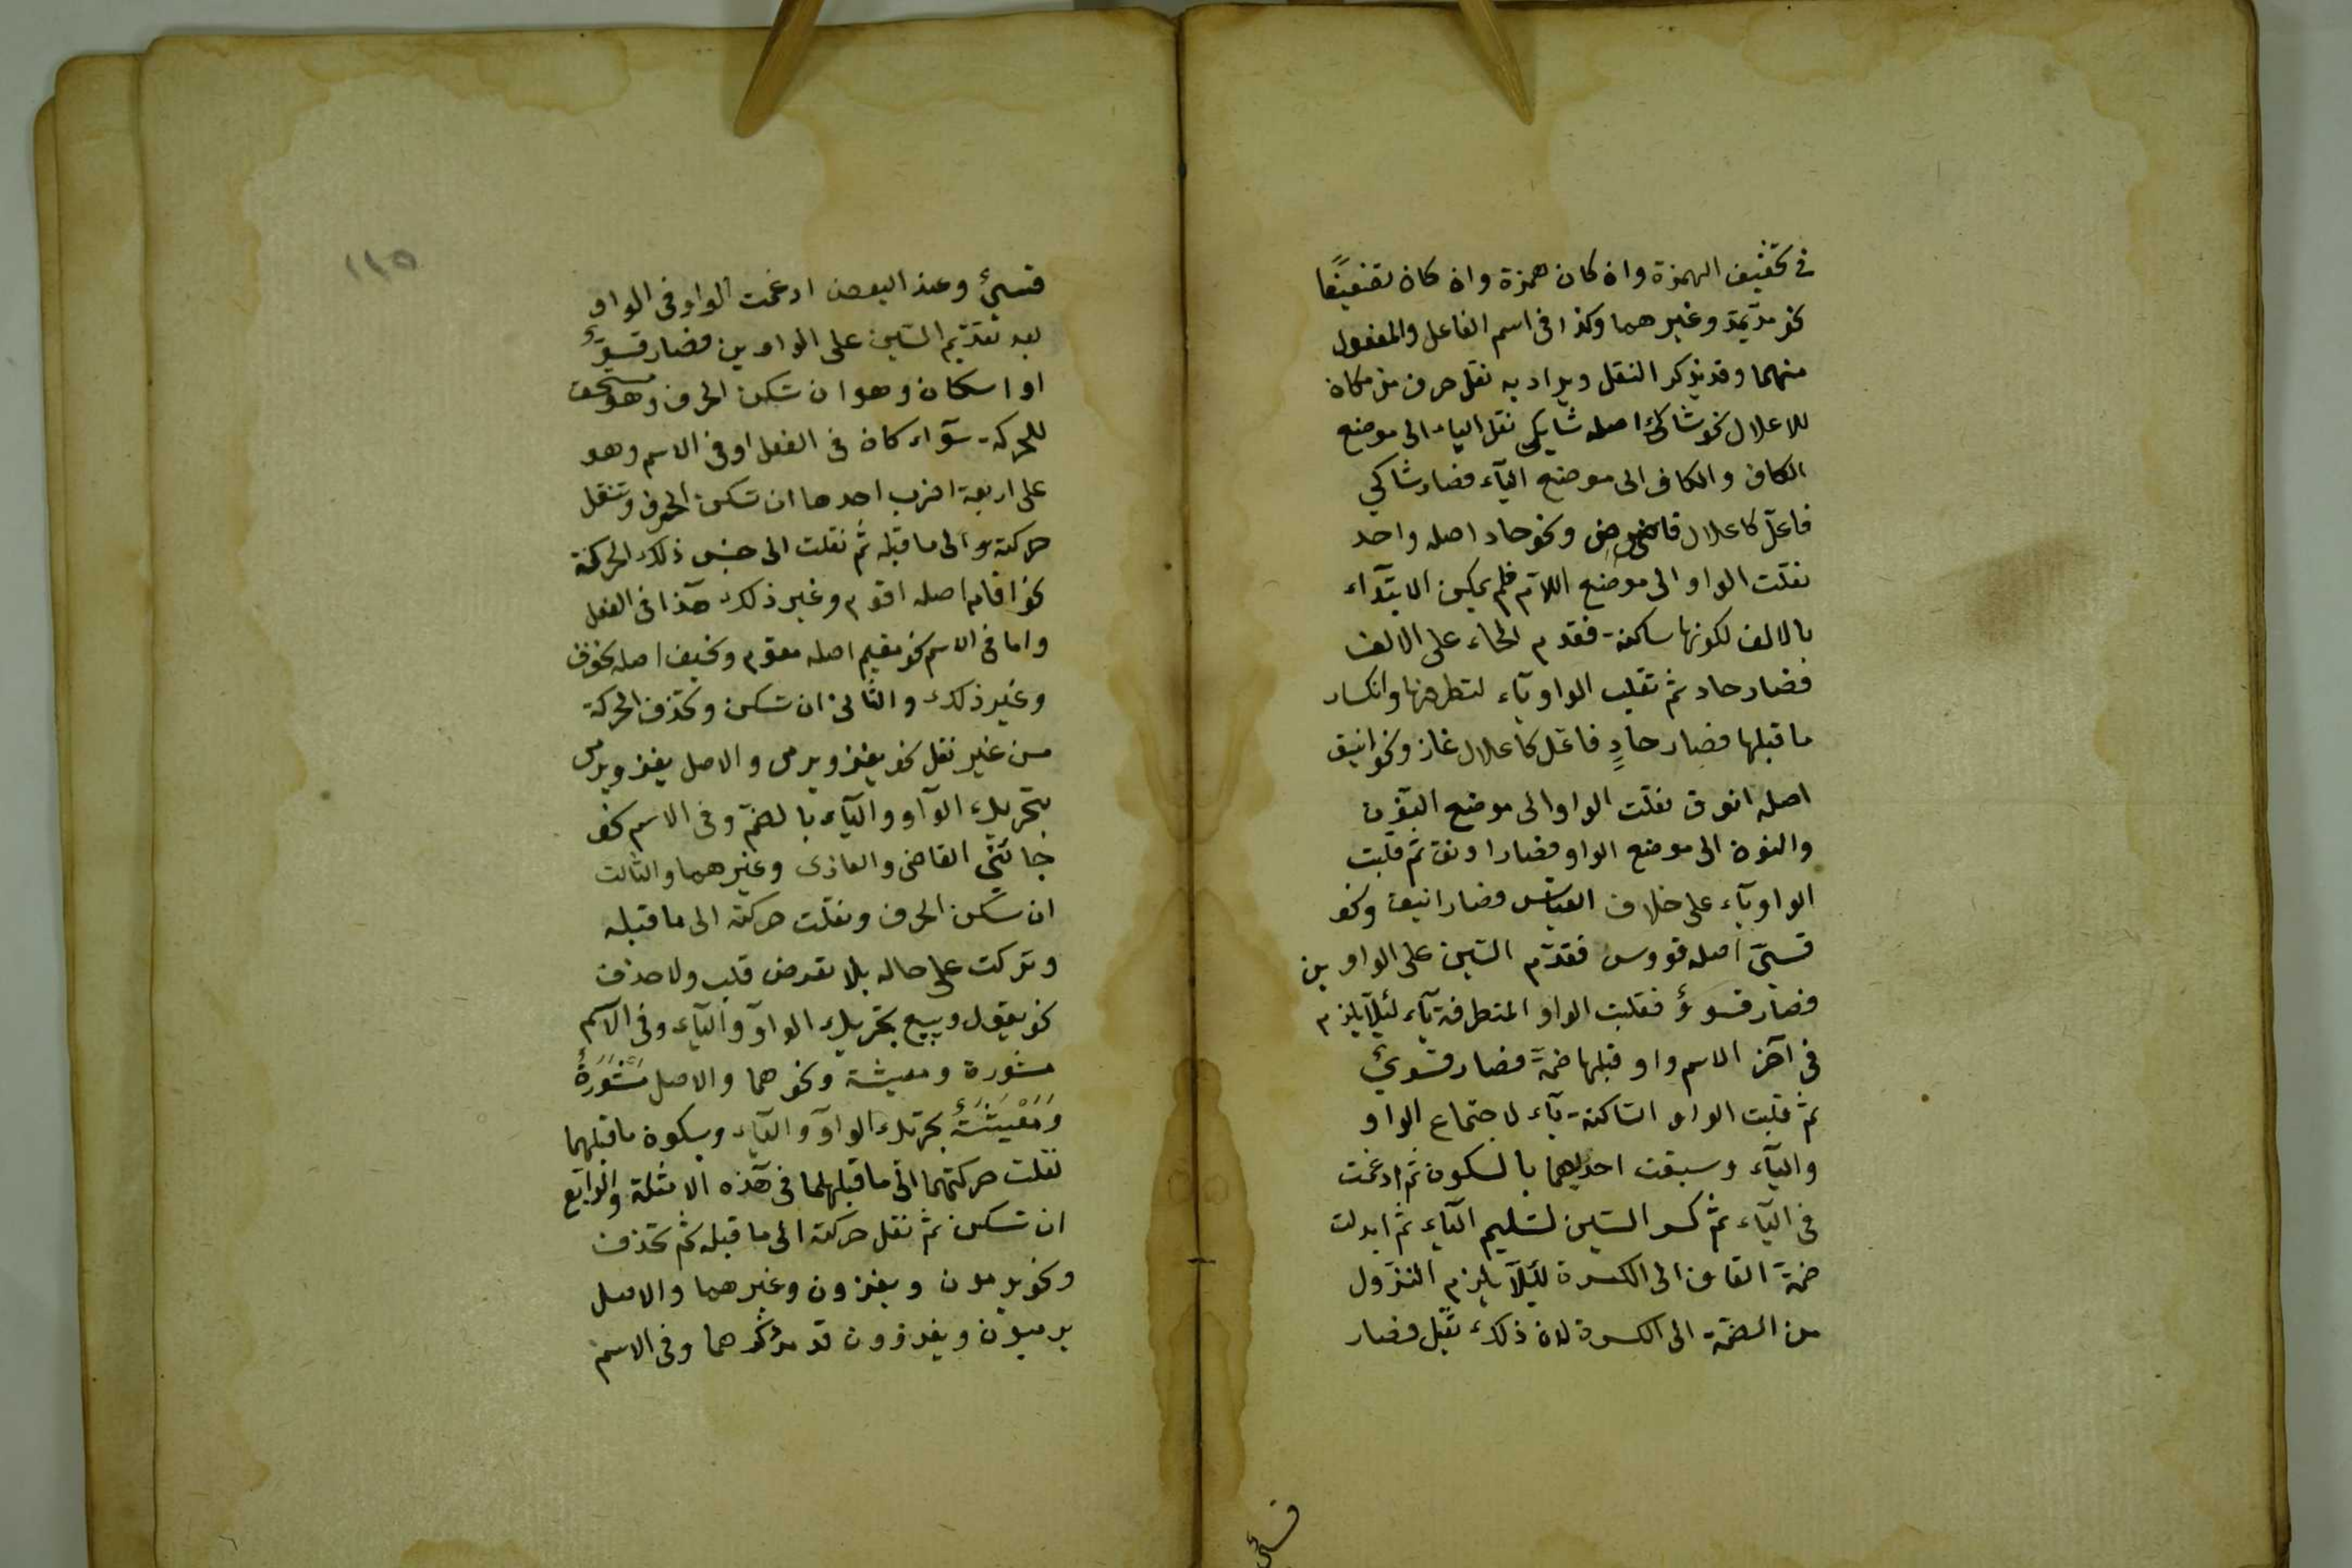 في تخفيف الهمزة وان كان همزة وان كان تضعيفًا
نحو مدّ يمدّ وغيرهما وكذا في اسم الفاعل والمفعول
منهما وقد يذكر النقل ويراد به نقل حرف من مكان
للاعلال نحو شاكٍ اصله شايك نقل الياء الى موضع
الكاف والكاف الى موضع الياء فصار شاكي
فاعلّ كاعلال قاض ونحو حاد اصله واحد
نقلت الواو الى موضع اللام فلم يمكن الابتداء
بالالف لكونها ساكنة فقدم الحاء على الالف
فصار حادو ثم تقلب الواو ياء لتطرفها وانكسار
ما قبلها فصار حادٍ فاعلّ كاعلال غاز ونحو انيق
اصله انوق نقلت الواو الى موضع النون
والنون الى موضع الواو فصار اونق ثم قلبت
الواو ياء على خلاف القياس فصار انيق ونحو
قسيّ اصله قووس فقدّم السّين على الواوين
فصار قسووٌ فقلبت الواو المتطرفة ياء لئلّا يلزم
في آخر الاسم واو قبلها ضمّة فصار قسويٌ
ثم قلبت الواو السّاكنة ياء لاجتماع الواو
والياء وسبقت احديهما بالسكون ثم ادغمت
في الياء ثم كسر السّين لتسليم الياء ثم ابدلت
ضمّة القاف الى الكسرة لئلّا يلزم النزول
من الضمّة الى الكسرة لان ذلك ثقيل فصار
قسيٌّ
١١٥
قسيٌّ وعند البعض ادغمت الواو في الواو
بعد تقديم السّين على الواوين فصار قسوٌّ
او اسكان وهو ان تسكن الحرف وهو مستحق
للحركة سوآء كان في الفعل او في الاسم وهو
على اربعة اضرب احدها ان تسكن الحرف وتنقل
حركته الى ما قبله ثم نقلت الى جنس ذلك الحركة
نحو اقام اصله اقوم وغير ذلك هذا في الفعل
واما في الاسم نحو مقيم اصله مقوم ونخيف اصله نخوف
وغير ذلك والثاني ان تسكن وتحذف الحركة
من غير نقل نحو يغزو ويرمى والاصل يغزو ويرمى
بتحريك الواو والياء بالضمّ وفي الاسم نحو
جائني القاضى والغازى وغيرهما والثالث
ان تسكن الحرف ونقلت حركته الى ما قبله
وتركت على حاله بلا تعرض قلب ولا حذف
نحو يقول ويبيع بتحريك الواو والياء وفي الاسم
مشورة ومعيشة ونحوهما والاصل مَشْوَرَةٌ
وَمَعْيِشَةٌ بحركة الواو والياء وبسكون ما قبلهما
نقلت حركتهما الى ما قبلهما في هذه الامثلة والرابع
ان تسكن ثم نقل حركته الى ما قبله ثم تحذف
ونحو يرمون ويغزون وغيرهما والاصل
يرميون ويغزوون قد مرّ ذكرهما وفي الاسم